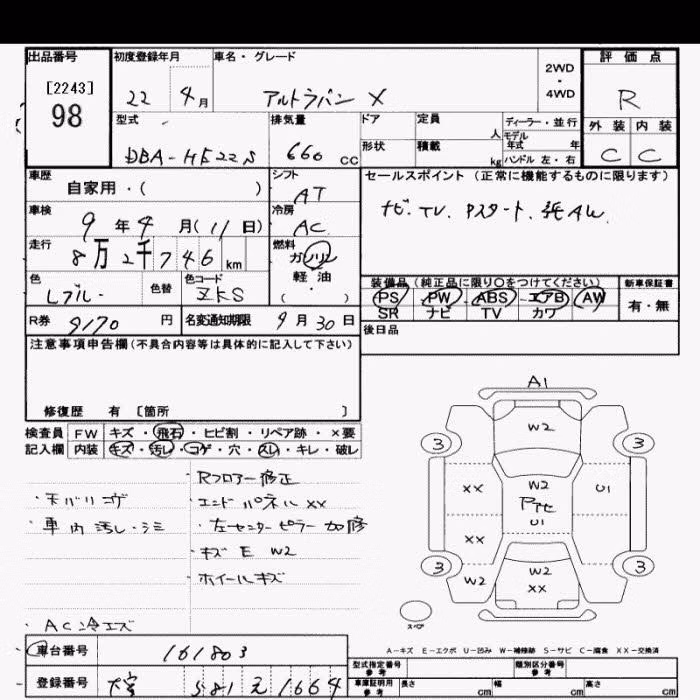 出品番号
[2243]
98
初度登録年月
22 4月
車名・グレード
アルトラパン X
2WD
・
4WD
評価点
R
外装 内装
C C
型式
DBA-HE22S
排気量
660 CC
ドア
形状
定員 人
積載 kg
ディーラー・並行
モデル年式 年
ハンドル 左・右
車歴
自家用・( )
シフト
AT
セールスポイント (正常に機能するものに限ります)
ナビ. TV. Pスタート. 純AW.
車検
9年4月(11日)
冷房
AC
走行
8万2千746km
燃料
ガソリン
軽・油
( )
色
Lブルー
色替
色コード
ZKS
装備品 (純正品に限り○をつけてください)
PS PW ABS エアB AW
SR ナビ TV カワ
新車保証書
有・無
R券 9170円
名変通知期限 9月30日
後日品
注意事項申告欄(不具合内容等は具体的に記入して下さい)
修復歴 有 〔箇所 〕
検査員 FW キズ・飛石・ヒビ割・リペア跡・×要
記入欄 内装 キズ・汚レ・コゲ・穴・スレ・キレ・破レ
・天バリコゲ
・車内汚レ・シミ
・AC冷エズ
・Rフロアー修正
・エンドパネルXX
・左センターピラー加修
・キズ E W2
・ホイールキズ
A1
W2
3 3
XX W2 U1
Rアセ
U1
XX
3 3
W2 W2
XX
スペア
A-キズ E-エクボ U-凹み W-補修跡 S-サビ C-腐食 XX-交換済
車台番号 161803
登録番号 大宮 581 え 1664
型式指定番号
参考
類別区分番号
参考
車庫証明用
参考
長さ cm
幅 cm
高さ cm